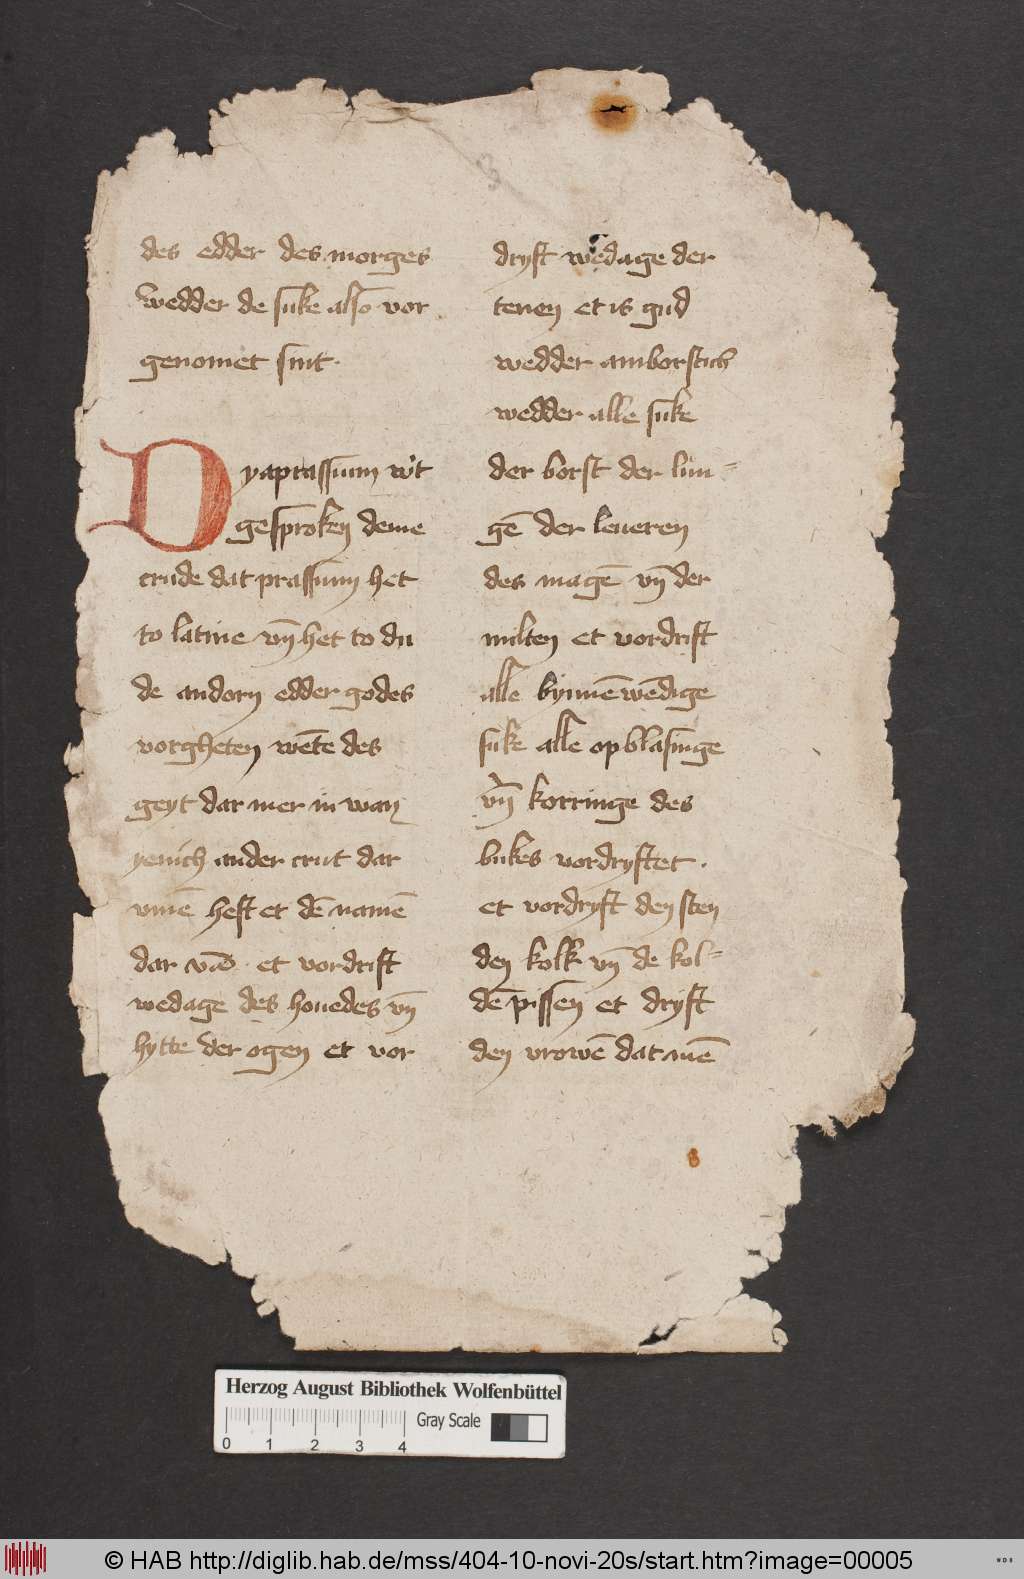 des edder des morges
wedder de suke also vor
genomet sint.
Dyaprassium wt
gesproken deme
crude dat prassium het
to latine vn̄ het to du
de andorn edder godes
vorgheten wēte des
geyt dar mer in wan
yenich ander crut dar
vmē heft et dē namē
dar vā et vordrift
wedage des houedes vn̄
hytte der ogen et vor
dryft wedage der
tenen et is gud
wedder amborstich
wedder alle suke
der borst der lun-
gē der leueren
des magē vn̄ der
milten et vordrift
alle bynnēwēdige
suke alle opblasinge
vn̄ korringe des
bukes vordryftet.
et vordryft den sten
den kolk vn̄ de kol-
dē pissen et dryft
den vrowē dat mē
Herzog August Bibliothek Wolfenbüttel
Gray Scale
0 1 2 3 4
© HAB http://diglib.hab.de/mss/404-10-novi-20s/start.htm?image=00005